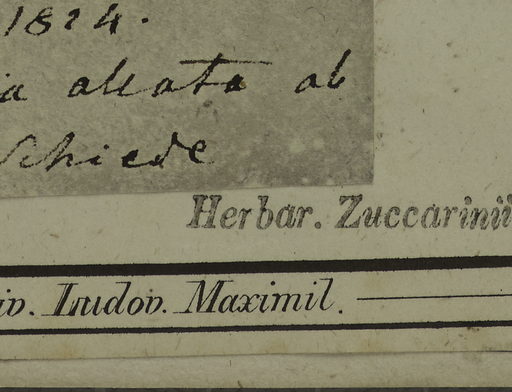 1824.
ia allata ab
Schiede
Herbar. Zuccarinii
iv. Ludov. Maximil.